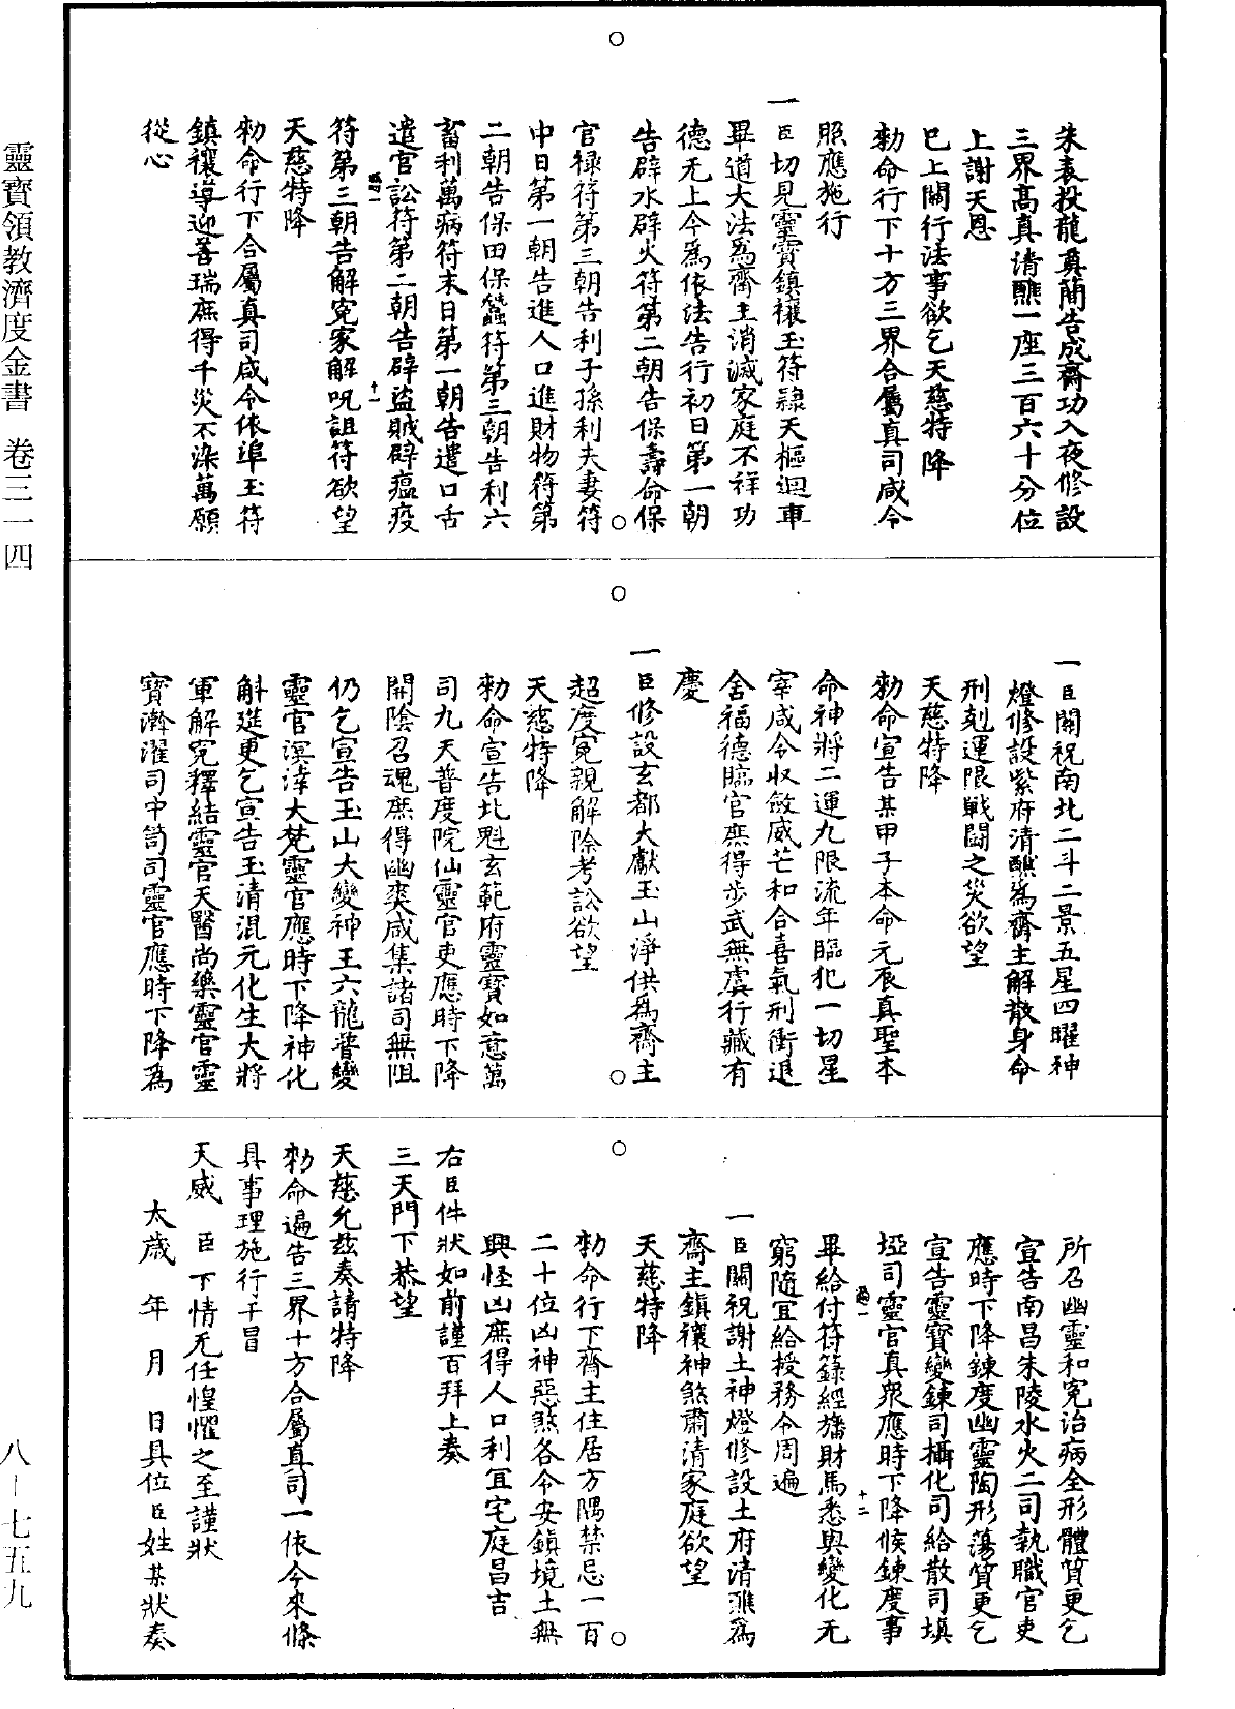 朱表投龍奠簡告成齋功入夜修設
三界高真清醮一座三百六十分位
上謝天恩
已上關行法事欲乞天慈特降
勑命行下十方三界合屬真司咸令
照應施行
一臣切見靈寶鎮禳玉符隸天樞迴車
畢道大法爲齋主消滅家庭不祥功
德无上今爲依法告行初日第一朝
告辟水辟火符第二朝告保壽命保
官禄符第三朝告利子孫利夫妻符
中日第一朝告進人口進財物符第
二朝告保田保蠶符第三朝告利六
畜利萬病符末日第一朝告遣口舌
遣官訟符第二朝告辟盜賊辟瘟疫
符第三朝告解冤家解呪詛符欲望
天慈特降
勑命行下合屬真司咸令依埠玉符
鎮禳導迎善瑞庶得千災不染萬願
從心
一臣關祝南北二斗二景五星四曜神
燈修設紫府清醮爲齋主解散身命
刑剋運限戰鬭之災欲望
天慈特降
勑命宣告某甲子本命元辰真聖本
命神將二運九限流年臨犯一切星
宰咸令收斂威芒和合喜氣刑衝退
舍福德臨官庶得步武無虞行藏有
慶
一臣修設玄都大獻玉山淨供爲齋主
超度冤親解除考訟欲望
天慈特降
勑命宣告北魁玄範府靈寶如意萬
司九天普度院仙靈官吏應時下降
開陰召魂庶得幽爽咸集諸司無阻
仍乞宣告玉山大變神王六龍普變
靈官溟涬大梵靈官應時下降神化
斛筵更乞宣告玉清混元化生大將
軍解冤釋結靈官天醫尚藥靈官靈
寶澣濯司巾笥司靈官應時下降爲
所召幽靈和冤治病全形體質更乞
宣告南昌朱陵水火二司執職官吏
應時下降鍊度幽靈陶形蕩質更乞
宣告靈寶變鍊司攝化司給散司填
埡司靈官真衆應時下降候鍊度事
畢給付符籙經旛財馬悉與變化无
窮隨宜給授務令周遍
一臣關祝謝土神燈修設土府清醮爲
齋主鎮禳神煞肅清家庭欲望
天慈特降
勑命行下齋主住居方隅禁忌一百
二十位凶神惡煞各令安鎮境土無
興怪凶庶得人口利宜宅庭昌吉
右臣件狀如前謹百拜上奏
三天門下恭望
天慈允玆奏請特降
勑命遍告三界十方合屬真司一依今來條
具事理施行干冒
天威　臣下情无任惶懼之至謹狀
太歲　年　月　日具位臣姓某狀奏
靈寶領教濟度金書　卷三一四
八－七五九